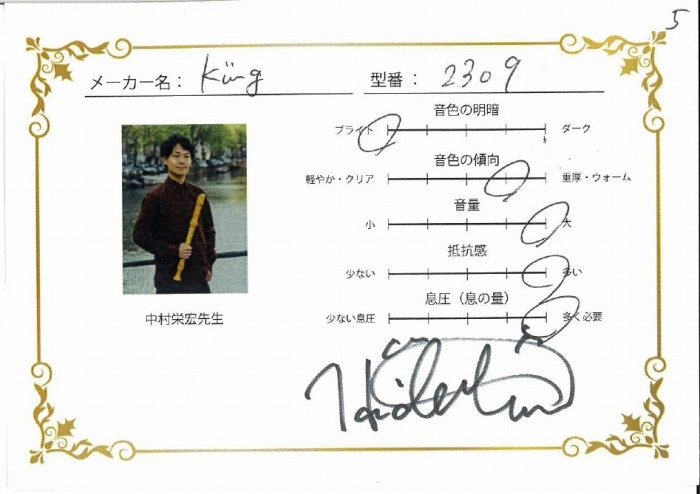 5
メーカー名： Küng 型番： 2309
音色の明暗
ブライト ダーク
音色の傾向
軽やか・クリア 重厚・ウォーム
音量
小 大
抵抗感
少ない 多い
息圧（息の量）
少ない息圧 多く必要
中村栄宏先生